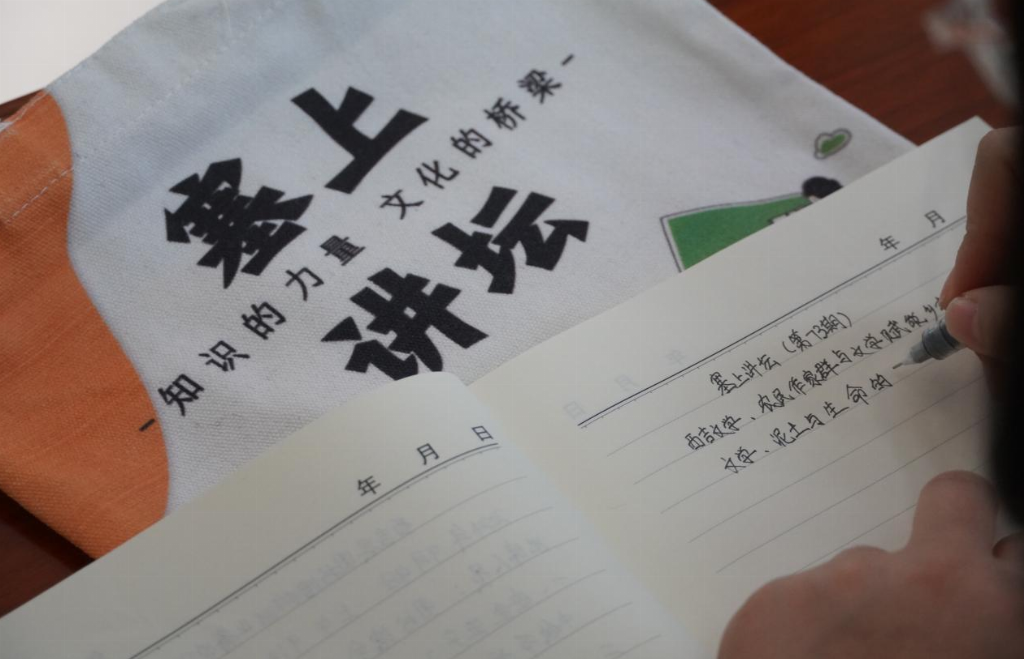 塞上
知识的力量 文化的桥梁
讲坛
年 月
塞上讲坛（第73期）
西吉文学、农民作家群与文学赋能乡
文学、泥土与生命的
年 月 日